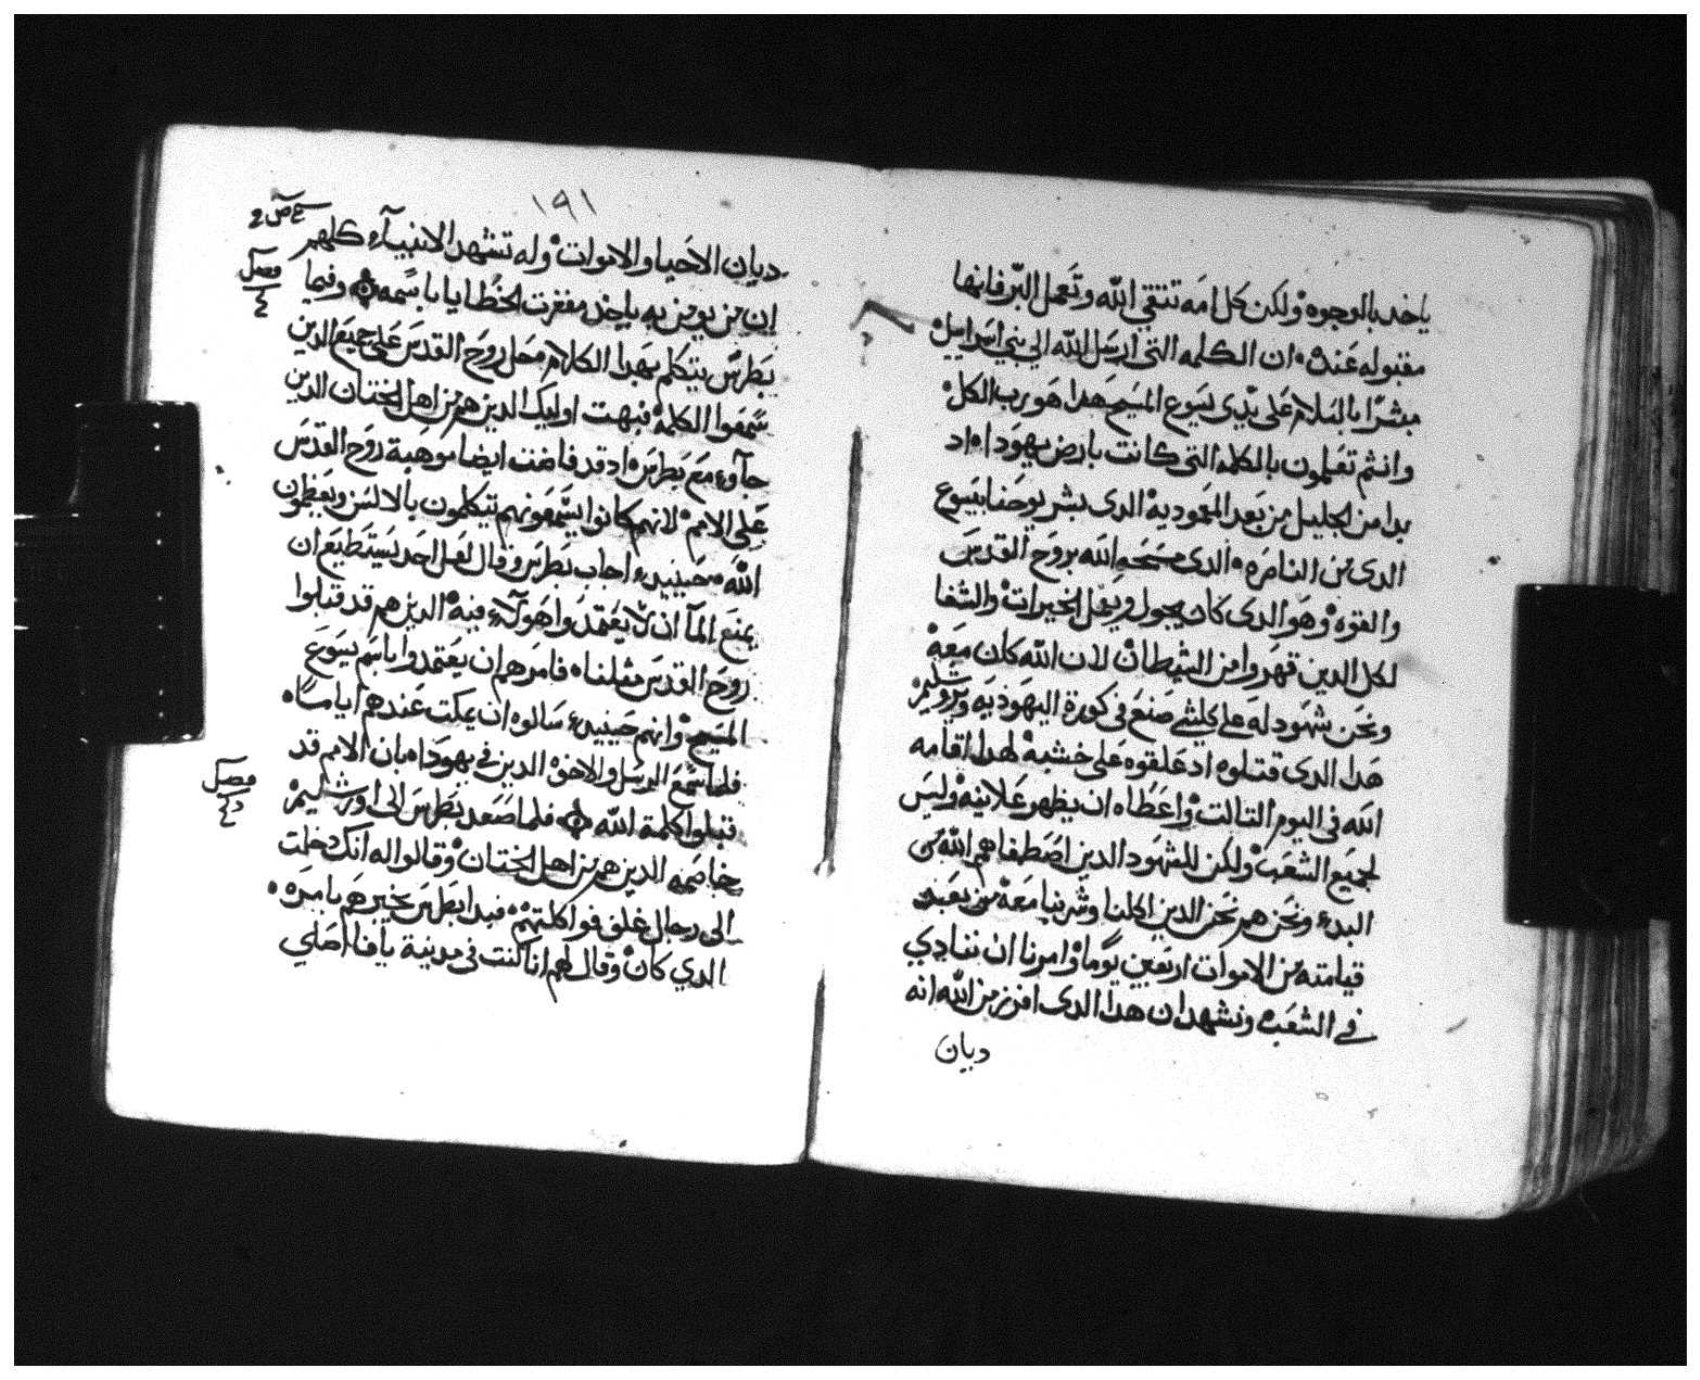 ياخد بالوجوه ولكن كل امه تتقي الله وتعمل البر فانها
مقبوله عنده ان الكلمه التى ارسل الله الى بني اسراييل
مبشرًا بالسلام على يدى يسوع المسيح هدا هو رب الكل
وانتم تعلمون بالكلمه التى كانت بارض يهودا اد
بدا من الجليل من بعد المعموديه الدى بشر يوحنا بيسوع
الدى من الناصره الدى مسحه الله بروح القدس
والقوه وهو الدى كان يجول ويعمل الخيرات والشفا
لكل الدين قهروا من الشيطان لان الله كان معه
ونحن شهود له على كلشي صنع فى كورة اليهوديه ويروشليم
هدا الدى قتلوه اد علقوه على خشبه لهدا اقامه
الله فى اليوم التالت واعطاه ان يظهر علانيه وليس
لجميع الشعب ولكن للشهود الدين اصطفاهم الله من
البدء ونحن هم نحن الدين اكلنا وشربنا معه من بعد
قيامته من الاموات اربعين يوماً وامرنا ان ننادي
في الشعب ونشهد ان هدا الدى افرز من الله انه
ديان
١٩١
ديان الاحيا والاموات وله تشهد الانبياء كلهم
ان من يومن به ياخد مغفرت الخطايا باسمه وفيما
فصل
٤
بطرس يتكلم بهدا الكلام حل روح القدس على جميع الدين
سمعوا الكلمه فبهت اوليك الدين هم من اهل الختان الدين
جآوء مع بطرس اد قد فاضت ايضا موهبة روح القدس
على الامم لانهم كانوا يسمعونهم يتكلمون بالالسن ويعظمون
الله حينيدء اجاب بطرس وقال لعل احد يستطيع ان
يمنع المآ ان لا يعتمدوا هولآء فيه الدين هم قد قبلوا
روح القدس مثلنا فامرهم ان يعتمدوا باسم يسوع
المسيح وانهم حينيدء سالوه ان يمكت عندهم اياماً
فلما سمع الرسل والاخوه الدين فى يهودا بان الامم قد
فصل
قبلوا كلمة الله فلما صعد بطرس الى اورشليم
خاصمه الدين هم من اهل الختان وقالوا له انك دخلت
الى رجال غلف فواكلتهم فبدا بطرس يخبرهم بامره
الدي كان وقال لهم انا كنت فى مدينة يافا اصلي